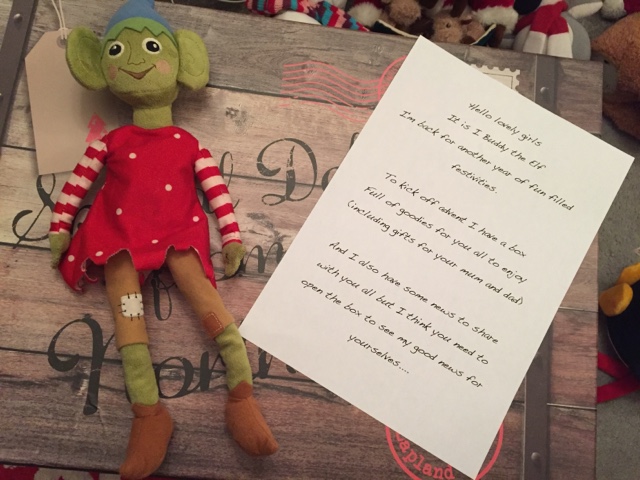 Hello lovely girls
It is I Buddy the Elf
I'm back for another year of fun filled
festivities.
To kick off advent I have a box
Full of goodies for you all to enjoy
(including gifts for your mum and dad)
And I also have some news to share
with you all but I think you need to
open the box to see my good news for
yourselves....
Lapland